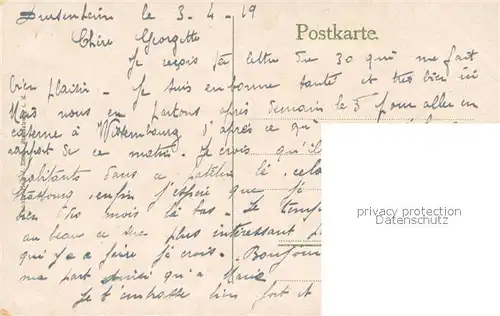 Drusenheim le 3-4-19
Postkarte.
Chère Georgette
Je reçois ta lettre du 30 qui me fait
bien plaisir - Je suis en bonne santé et très bien ici
Mais nous en partons après demain le 5 pour aller en
caserne à Wissembourg d'après ce qu'
rapport de ce matin. Je crois qu'il
habitants dans ce patelin là, cela
Strasbourg, enfin j'espère que je
bien des mois là bas - Le temps
au beau ce sera plus intéressant
qui y a à faire je crois. - Bonjour
ma part ainsi qu'à Marie
Je t'embrasse bien fort et
privacy protection
Datenschutz